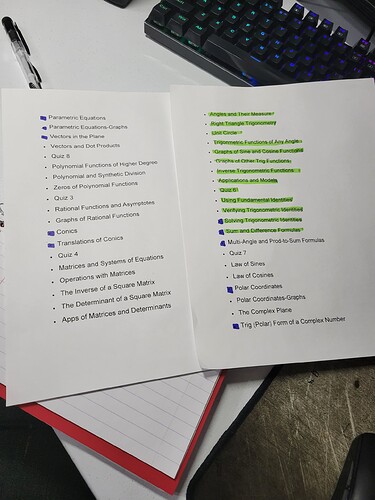 Parametric Equations
Parametric Equations-Graphs
Vectors in the Plane
Vectors and Dot Products
Quiz 8
Polynomial Functions of Higher Degree
Polynomial and Synthetic Division
Zeros of Polynomial Functions
Quiz 3
Rational Functions and Asymptotes
Graphs of Rational Functions
Conics
Translations of Conics
Quiz 4
Matrices and Systems of Equations
Operations with Matrices
The Inverse of a Square Matrix
The Determinant of a Square Matrix
Apps of Matrices and Determinants
Angles and Their Measure
Right Triangle Trigonometry
Unit Circle
Trigonometric Functions of Any Angle
Graphs of Sine and Cosine Functions
Graphs of Other Trig Functions
Inverse Trigonometric Functions
Applications and Models
Quiz 6
Using Fundamental Identities
Verifying Trigonometric Identities
Solving Trigonometric Identities
Sum and Difference Formulas
Multi-Angle and Prod-to-Sum Formulas
Quiz 7
Law of Sines
Law of Cosines
Polar Coordinates
Polar Coordinates-Graphs
The Complex Plane
Trig (Polar) Form of a Complex Number